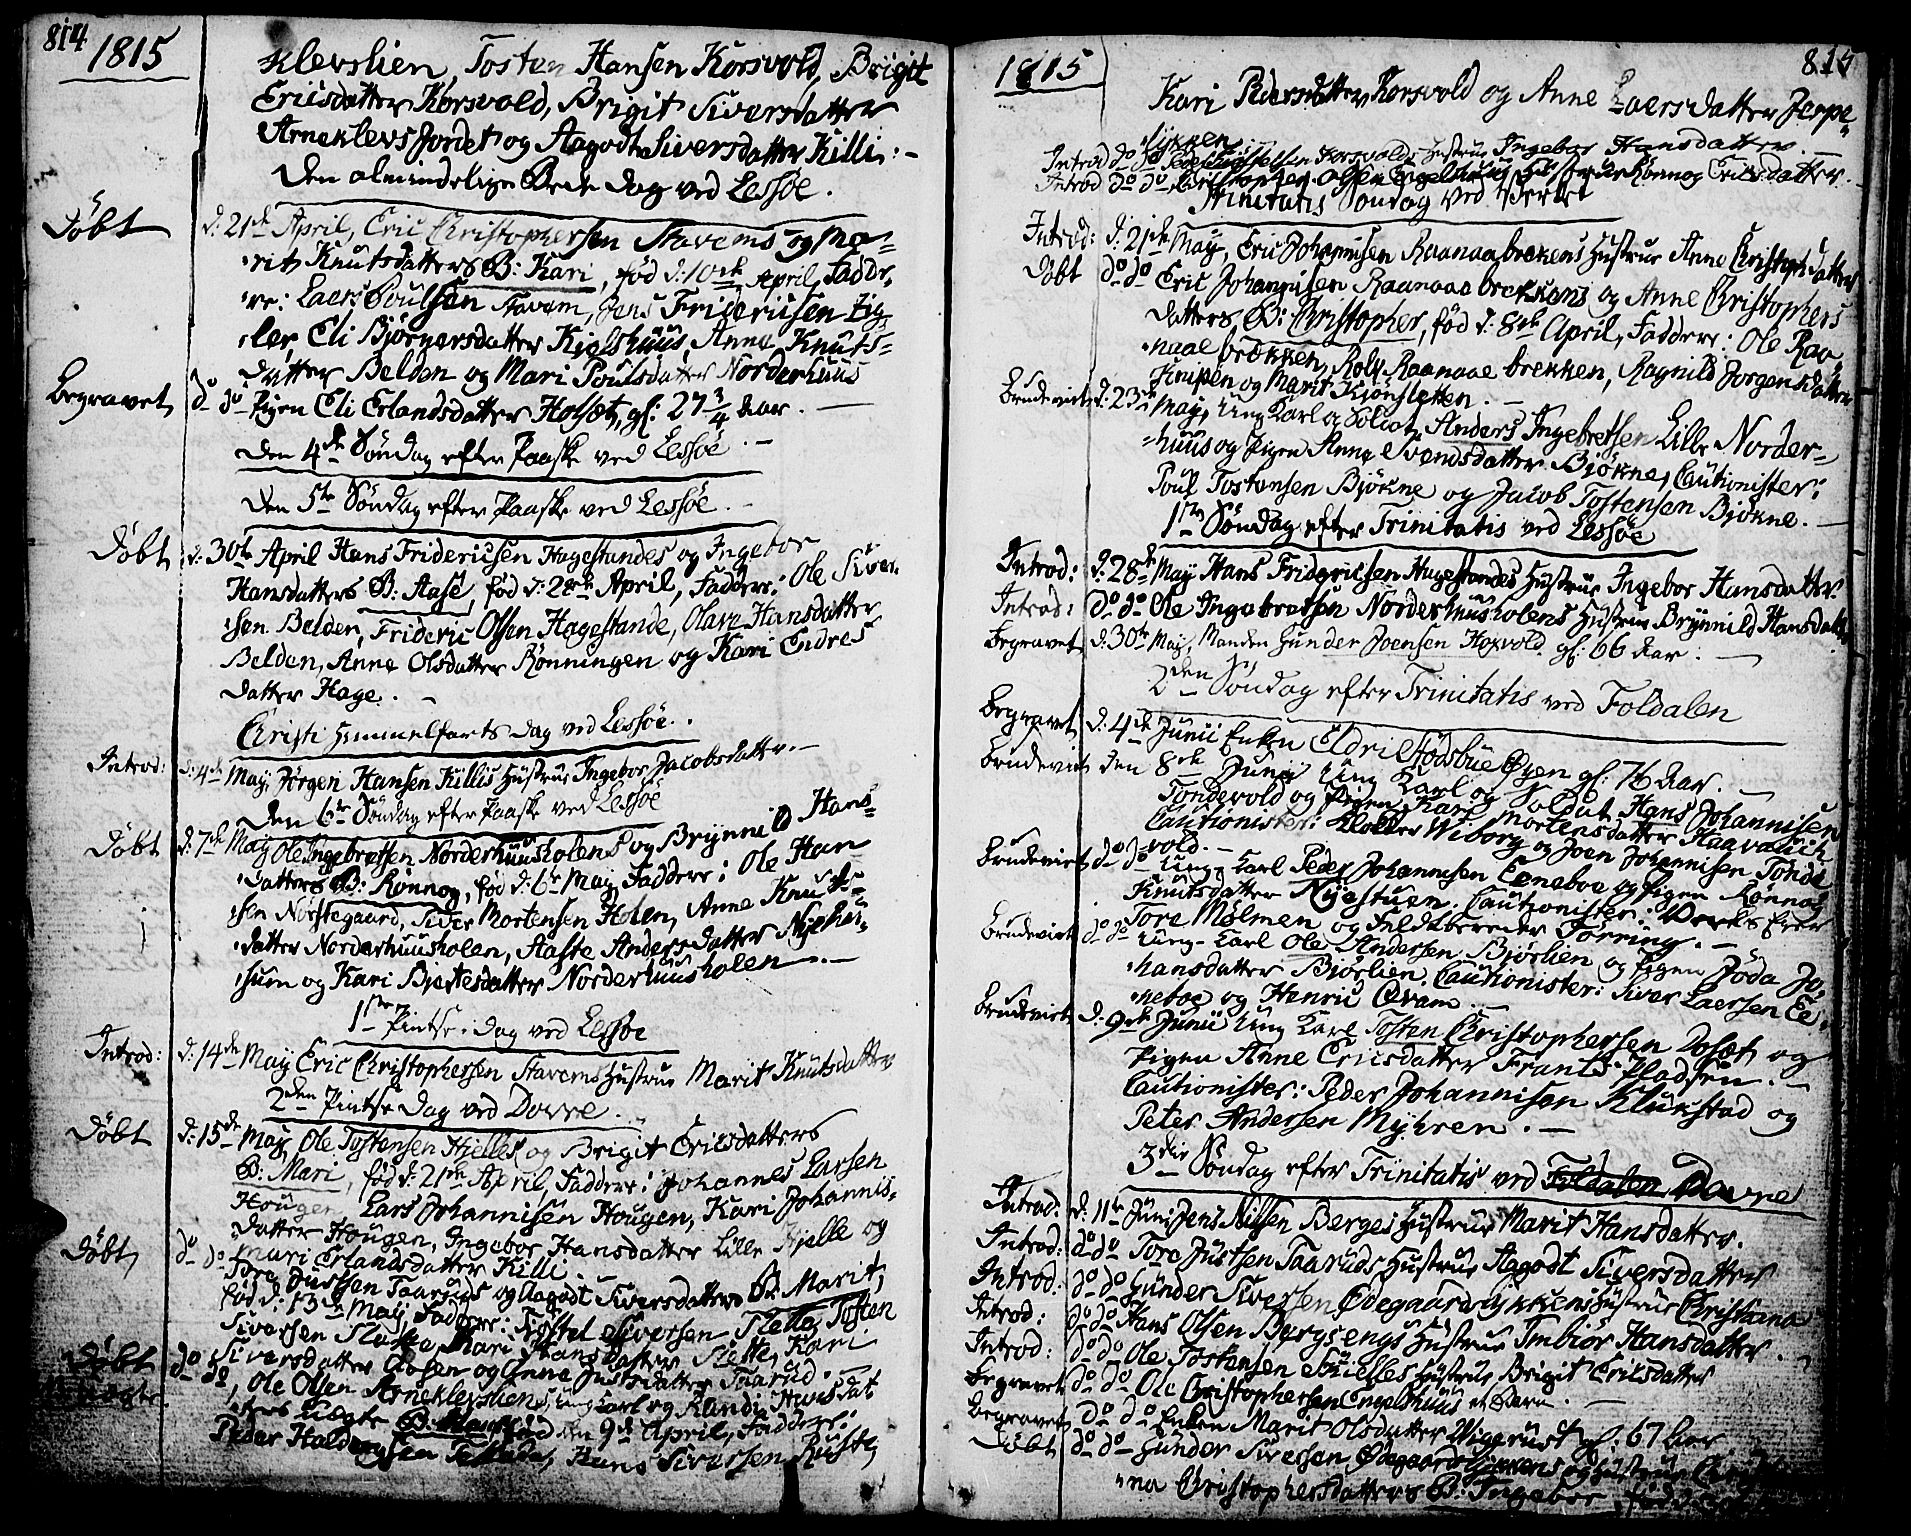 814
1815
Klevslien, Tosten Hansen Korsvold, Brigit
Ericsdatter Korsvold, Brigit Siversdatter
Arneklevs Jordet og Aagodt Siversdatter Killi. -
Den almindelige Bede Dag ved Lessøe.
Døbt d: 21de April, Eric Christophersen Stavems og Ma-
rit Knutsdatters B: Kari, fød d: 10de April, Fadde-
re: Laers Poulsen Stavem, Jens Fridericsen Zig-
ler, Eli Bjørnersdatter Kjelshuus, Anne Knuts-
datter Belden og Mari Poulsdatter Norderhuus
Begravet do do Pigen Eli Erlandsdatter Holsæt, gl: 27 3/4 Aar. -
Den 4de Søndag efter Paaske ved Lessøe. -
Den 5te Søndag efter Paaske ved Lessøe. -
Døbt d: 30te April Hans Fridericsen Hagestandes og Ingebor
Hansdatters B: Aase, fød d: 28de April, Faddere: Ole Siver-
sen Belden, Frideric Olsen Hagestande, Olave Hansdatter
Belden, Anne Olsdatter Rønningen og Kari Endres
datter Hage. -
Christi Himmelfarts Dag ved Lessøe.
Introd: d: 4de May, Jørgen Hansen Killis Hustrue Ingebor Jacobsdatter. -
Den 6te Søndag efter Paaske ved Lessøe
Døbt d: 7de May Ole Ingebretsen Norderhuusholens og Brynnild Hans-
datters B: Rønnog, fød d: 6te May, Faddere: Ole Han-
sen Norstegaard, Siver Mortensen Holen, Anne Knuts-
datter Norderhuusholen, Aaste Andersdatter Nyehu-
sum og Kari Bjertesdatter Norderhuusholen. -
1ste Pintse-Dag ved Lessøe
Introd: d: 14de May Eric Christophersen Stavems Hustrue Marit Knutsdatter
2den Pintse Dag ved Dovre.
Døbt d: 15de May, Ole Tostensen Hjelles og Brigit Ericsdatters
B: Mari, fød d: 21de April, Faddere: Johannes Larsen
Hougen, Lars Johannisen Hougen, Kari Johannis-
datter Hougen, Ingebor Hansdatter Lille Hjelle og
Mari Erlandsdatter Killi. -
Døbt do do Tore Justsen Taaruds og Aagodt Siversdatters B: Marit,
fød d: 13de May, Faddere: Trostel Siversen Slette, Tosten
Siversen Slette, Mari Hansdatter Slette, Kari
Siversdatter Aasen og Anne Justsdatter Taarud. -
Døbt do do, Ole Olsen Arneklevsliens, Ung Karl og Randi Hansdat
ters uægte B: fød den 9de April, Faddere:
Peder Haldorsen, Hans Siversen Ruste,
1815
815
Kari Pedersdatter Korsvold og Anne Laersdatter Jespe-
lykken
Introd do do Hansen Korsvolds Hustrue Ingebor Hansdatter. -
Introd do do, Christopher Olsen Engelshuus Hustrue Rønnog Ericsdatter.
Trinitatis Søndag ved Verket
Introd: d: 21de May, Eric Johannisen Raanaabrekens Hustrue Anne Christophersdatter
Døbt do do Eric Johannisen Raanaaebrekkens og Anne Christophers
datters B: Christopher, fød d: 8de April, Faddere: Ole Raa-
naaebrækken, Rolv Raanaaebrekken, Ragnild Jorgensdatter
Knipen og Marit Kjønsletten. -
Brudeviet d: 23de May, Ung Karl og Soldat Anders Ingebretsen Lille Norder-
huus og Pigen Anne Svendsdatter Bjøkne, Cautionister:
Poul Tostensen Bjøkne og Jacob Tostensen Bjøkne. -
1ste Søndag efter Trinitatis ved Lessøe
Introd: d: 28de May Hans Fridericsen Hagestandes Hustrue Ingebor Hansdatter
Introd: do do Ole Ingebretsen Norderhuusholens Hustrue Brynnild Hansdatter
Begravet d: 30te May, Manden Gunder Joensen Hoxvold gl: 66 Aar. -
2den Søndag efter Trinitatis ved Foldalen
Begravet d: 4de Junii Enken Eldri Stødsbue Øyen gl: 76 Aar. -
Brudeviet den 8de Junii Ung Karl og Soldat Hans Johannisen
Tondevold og Pigen Kari Mortensdatter Haavalich
Cautionister: Klokker Wiborg og Joen Johannisen Tonde
vold. -
Brudeviet do do Ung Karl Peder Johannisen Eneboe og Pigen Rønnog
Knutsdatter Nyestuen. Cautionister: Verks Eier
Tore Mølmen og Feldbereder Tørring. -
Brudeviet do do Ung-Karl Ole Andersen Bjørlien og Pigen Jøda Jo-
hansdatter Bjørlien. Cautionister: Siver Laersen Ee-
neboe og Henric Øvram. -
Brudeviet d: 9de Junii Ung Karl Tosten Christophersen Dosæt og
Pigen Anne Ericsdatter Frants-Pladsen. -
Cautionister: Peder Johannisen Klukstad og
Peter Andersen Myhren. -
3die Søndag efter Trinitatis ved Foldalen Dovre
Introd: d: 11te Juni Jens Nilsen Berges Hustrue Marit Hansdatter.
Introd: do do Tore Justsen Taaruds Hustrue Aagodt Siversdatter
Introd: do do Gunder Siversen Ødegaardslykkens Hustrue Christiana
Introd: do do Hans Olsen Bergsengs Hustrue Imbiør Hansdatter.
Introd: do do Ole Tostensen Hjelles Hustrue Brigit Ericsdatter
Begravet do do Ole Christophersen Engelshuus et Barn. -
Begravet do do Enken Marit Olsdatter Wigerust gl: 67 Aar
Døbt do do Gunder Siversen Ødegaardslykkens og Hustrue
na Christophersdatters B: Ingebor, fød